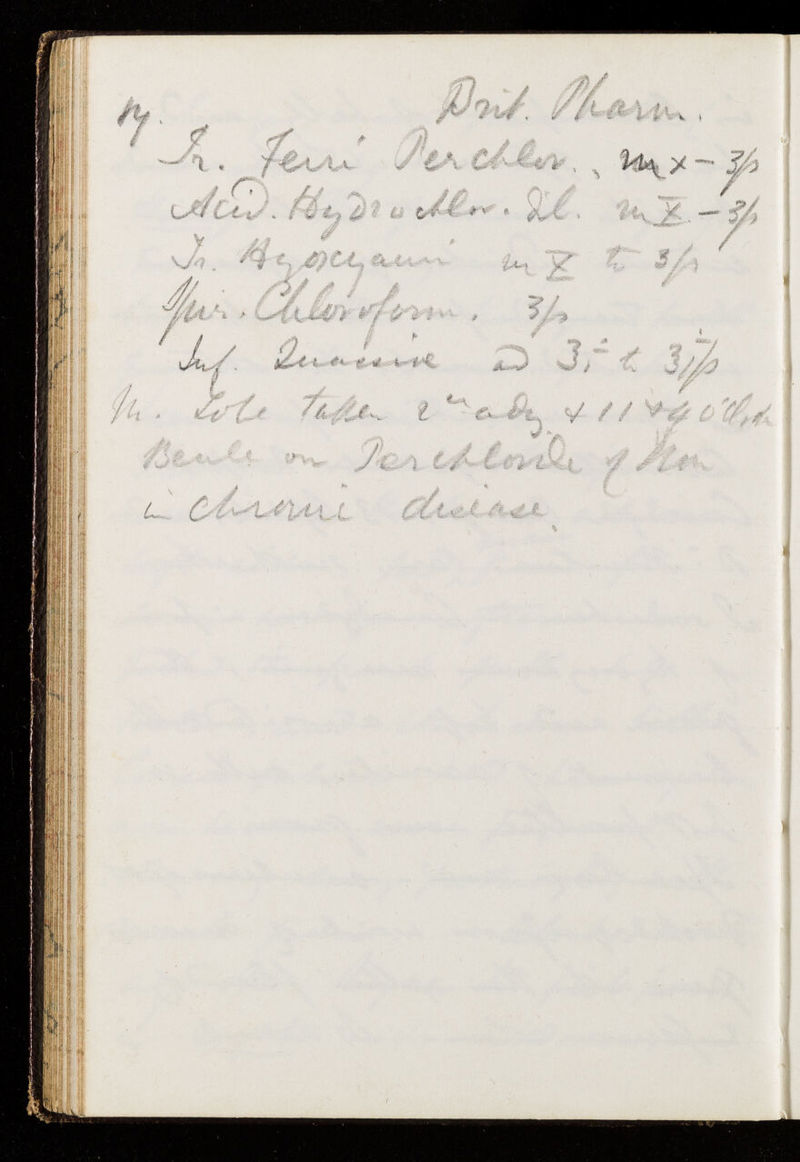 ℞. Brit. Pharm.
Tr. Ferri Perchlor., ♏ x – ʒſs
Acid. Hydrochlor. dil. ♏ X. – ʒſs
Tr. Hyoscyami ♏ X to ʒſs
Spir. Chloroform. ʒſs
Inf. Quassiae ad ℥i to ℥iſs
M. To be taken 2ce a day at 11 & 4 o'clock
Beale on Perchloride of Iron
in chronic disease.